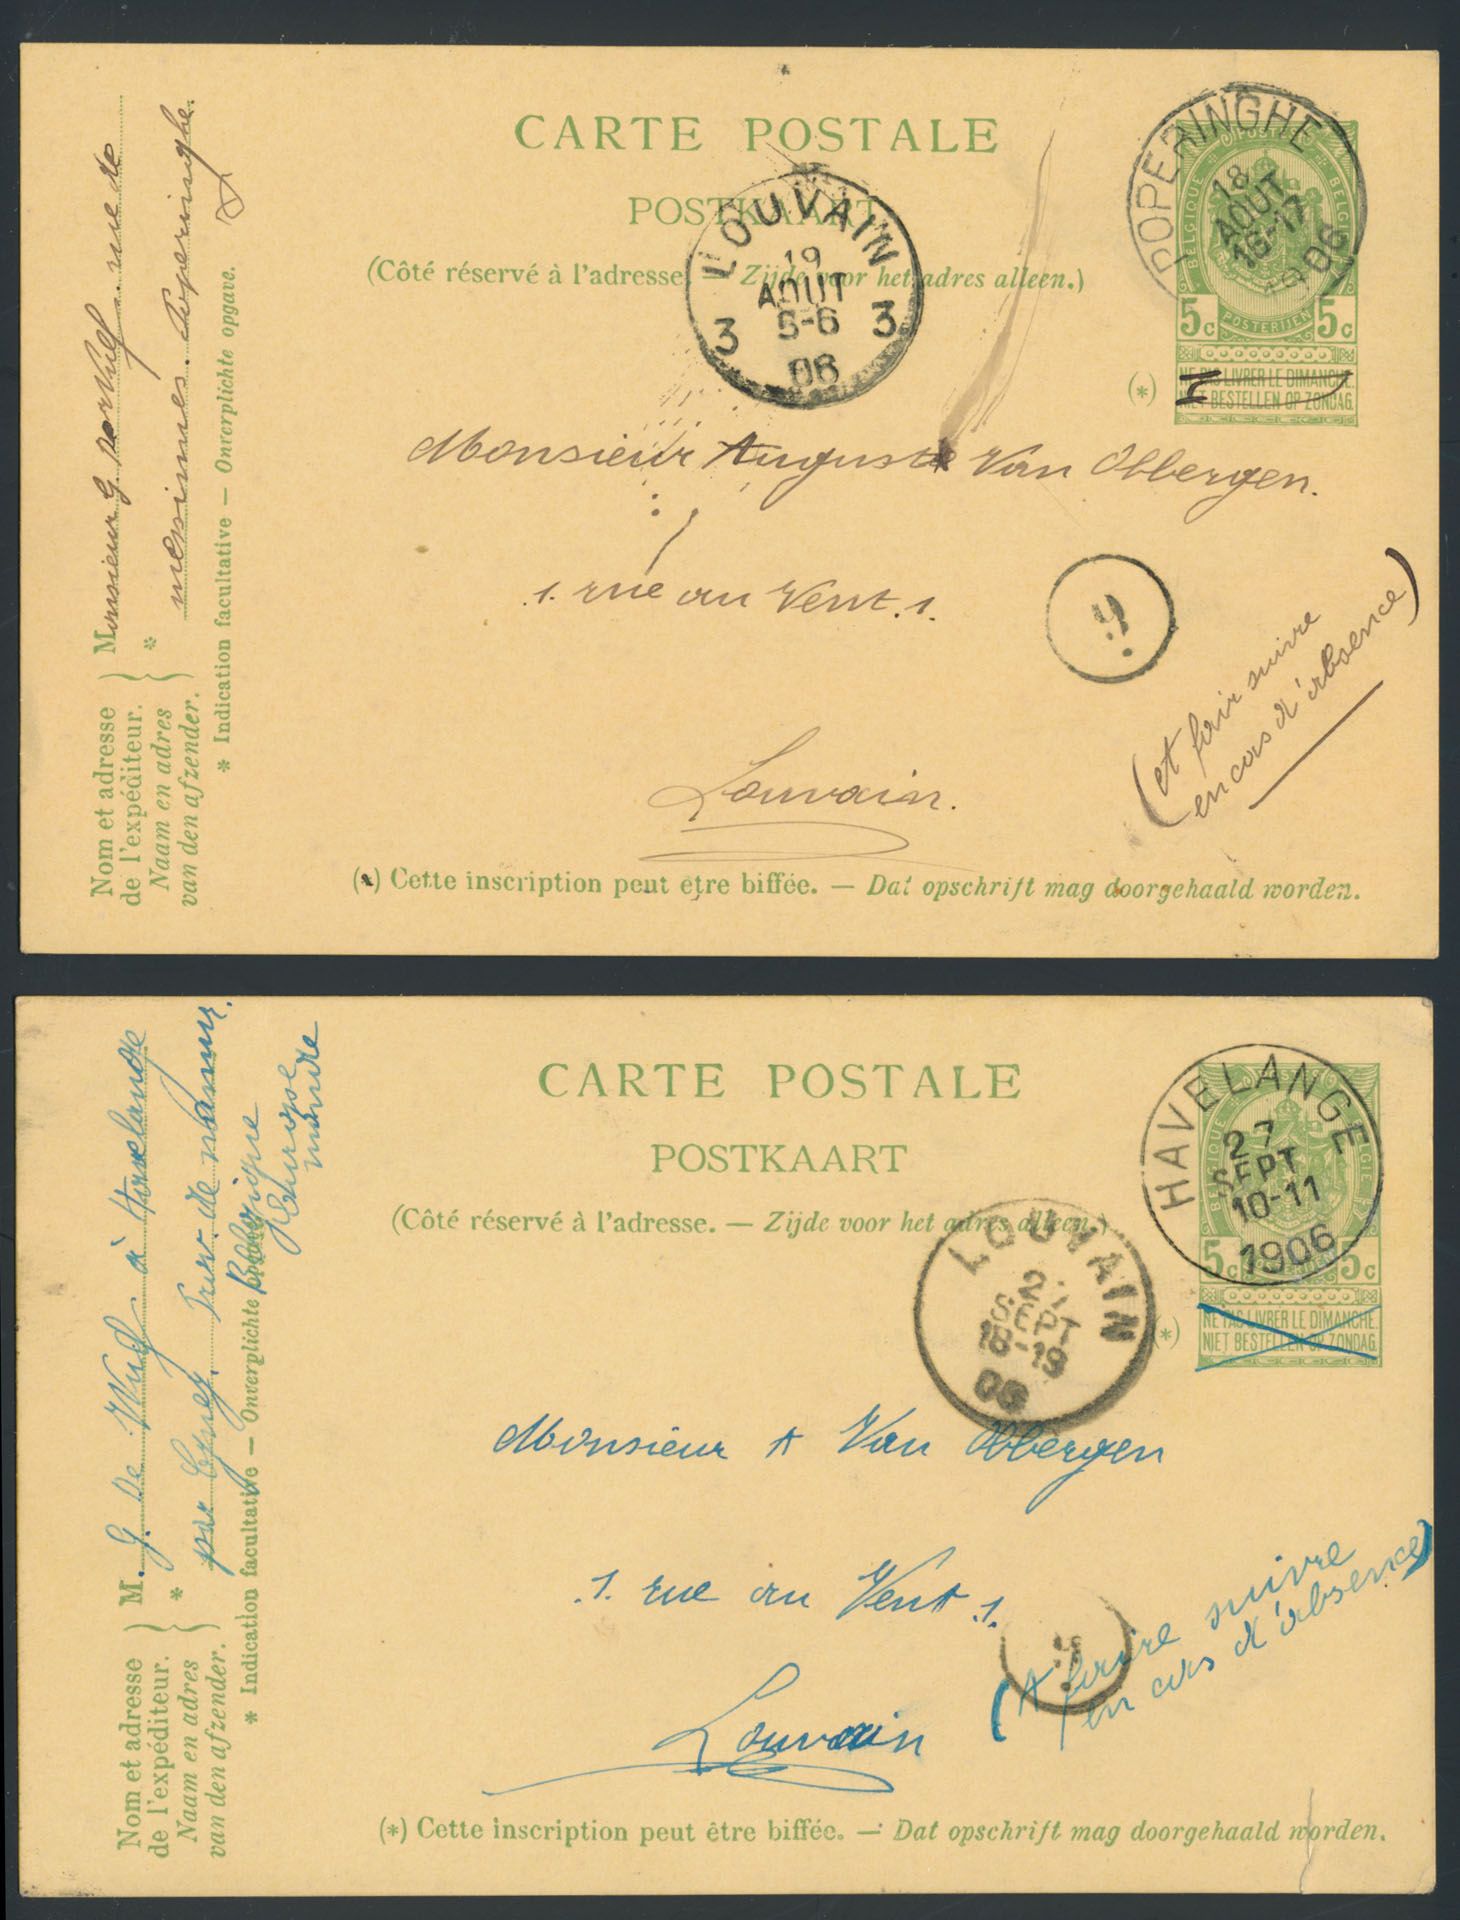 CARTE POSTALE
POSTKAART
(Côté réservé à l'adresse. — Zijde voor het adres alleen.)
POPERINGHE
18
AOUT
16-17
1906
BELGIQUE
POSTES
BELGIË
POSTERIJEN
5c 5c
NE PAS LIVRER LE DIMANCHE.
NIET BESTELLEN OP ZONDAG.
(*)
LOUVAIN
19
AOUT
5-6
3 3
06
Monsieur Auguste Van Obbergen.
1. rue au Vent. 1.
Louvain.
(et fair suivre
en cas d'absence)
(*) Cette inscription peut être biffée. — Dat opschrift mag doorgehaald worden.
Nom et adresse
de l'expéditeur.
Naam en adres
van den afzender.
Monsieur G De Wulf rue de
*
messines. Poperinghe.
* Indication facultative — Onverplichte opgave.
CARTE POSTALE
POSTKAART
(Côté réservé à l'adresse. — Zijde voor het adres alleen.)
HAVELANGE
27
SEPT
10-11
1906
BELGIQUE
5c 5c
NE PAS LIVRER LE DIMANCHE.
NIET BESTELLEN OP ZONDAG.
(*)
LOUVAIN
SEPT
18-19
06
Monsieur A Van Obbergen
1. rue au Vent 1.
Louvain
(et faire suivre
en cas d'absence)
(*) Cette inscription peut être biffée. — Dat opschrift mag doorgehaald worden.
Nom et adresse
de l'expéditeur.
Naam en adres
van den afzender.
M. G. De Wulf à Havelange
*
par Ciney. Prov. de Namur.
* Indication facultative — Onverplichte
Belgique